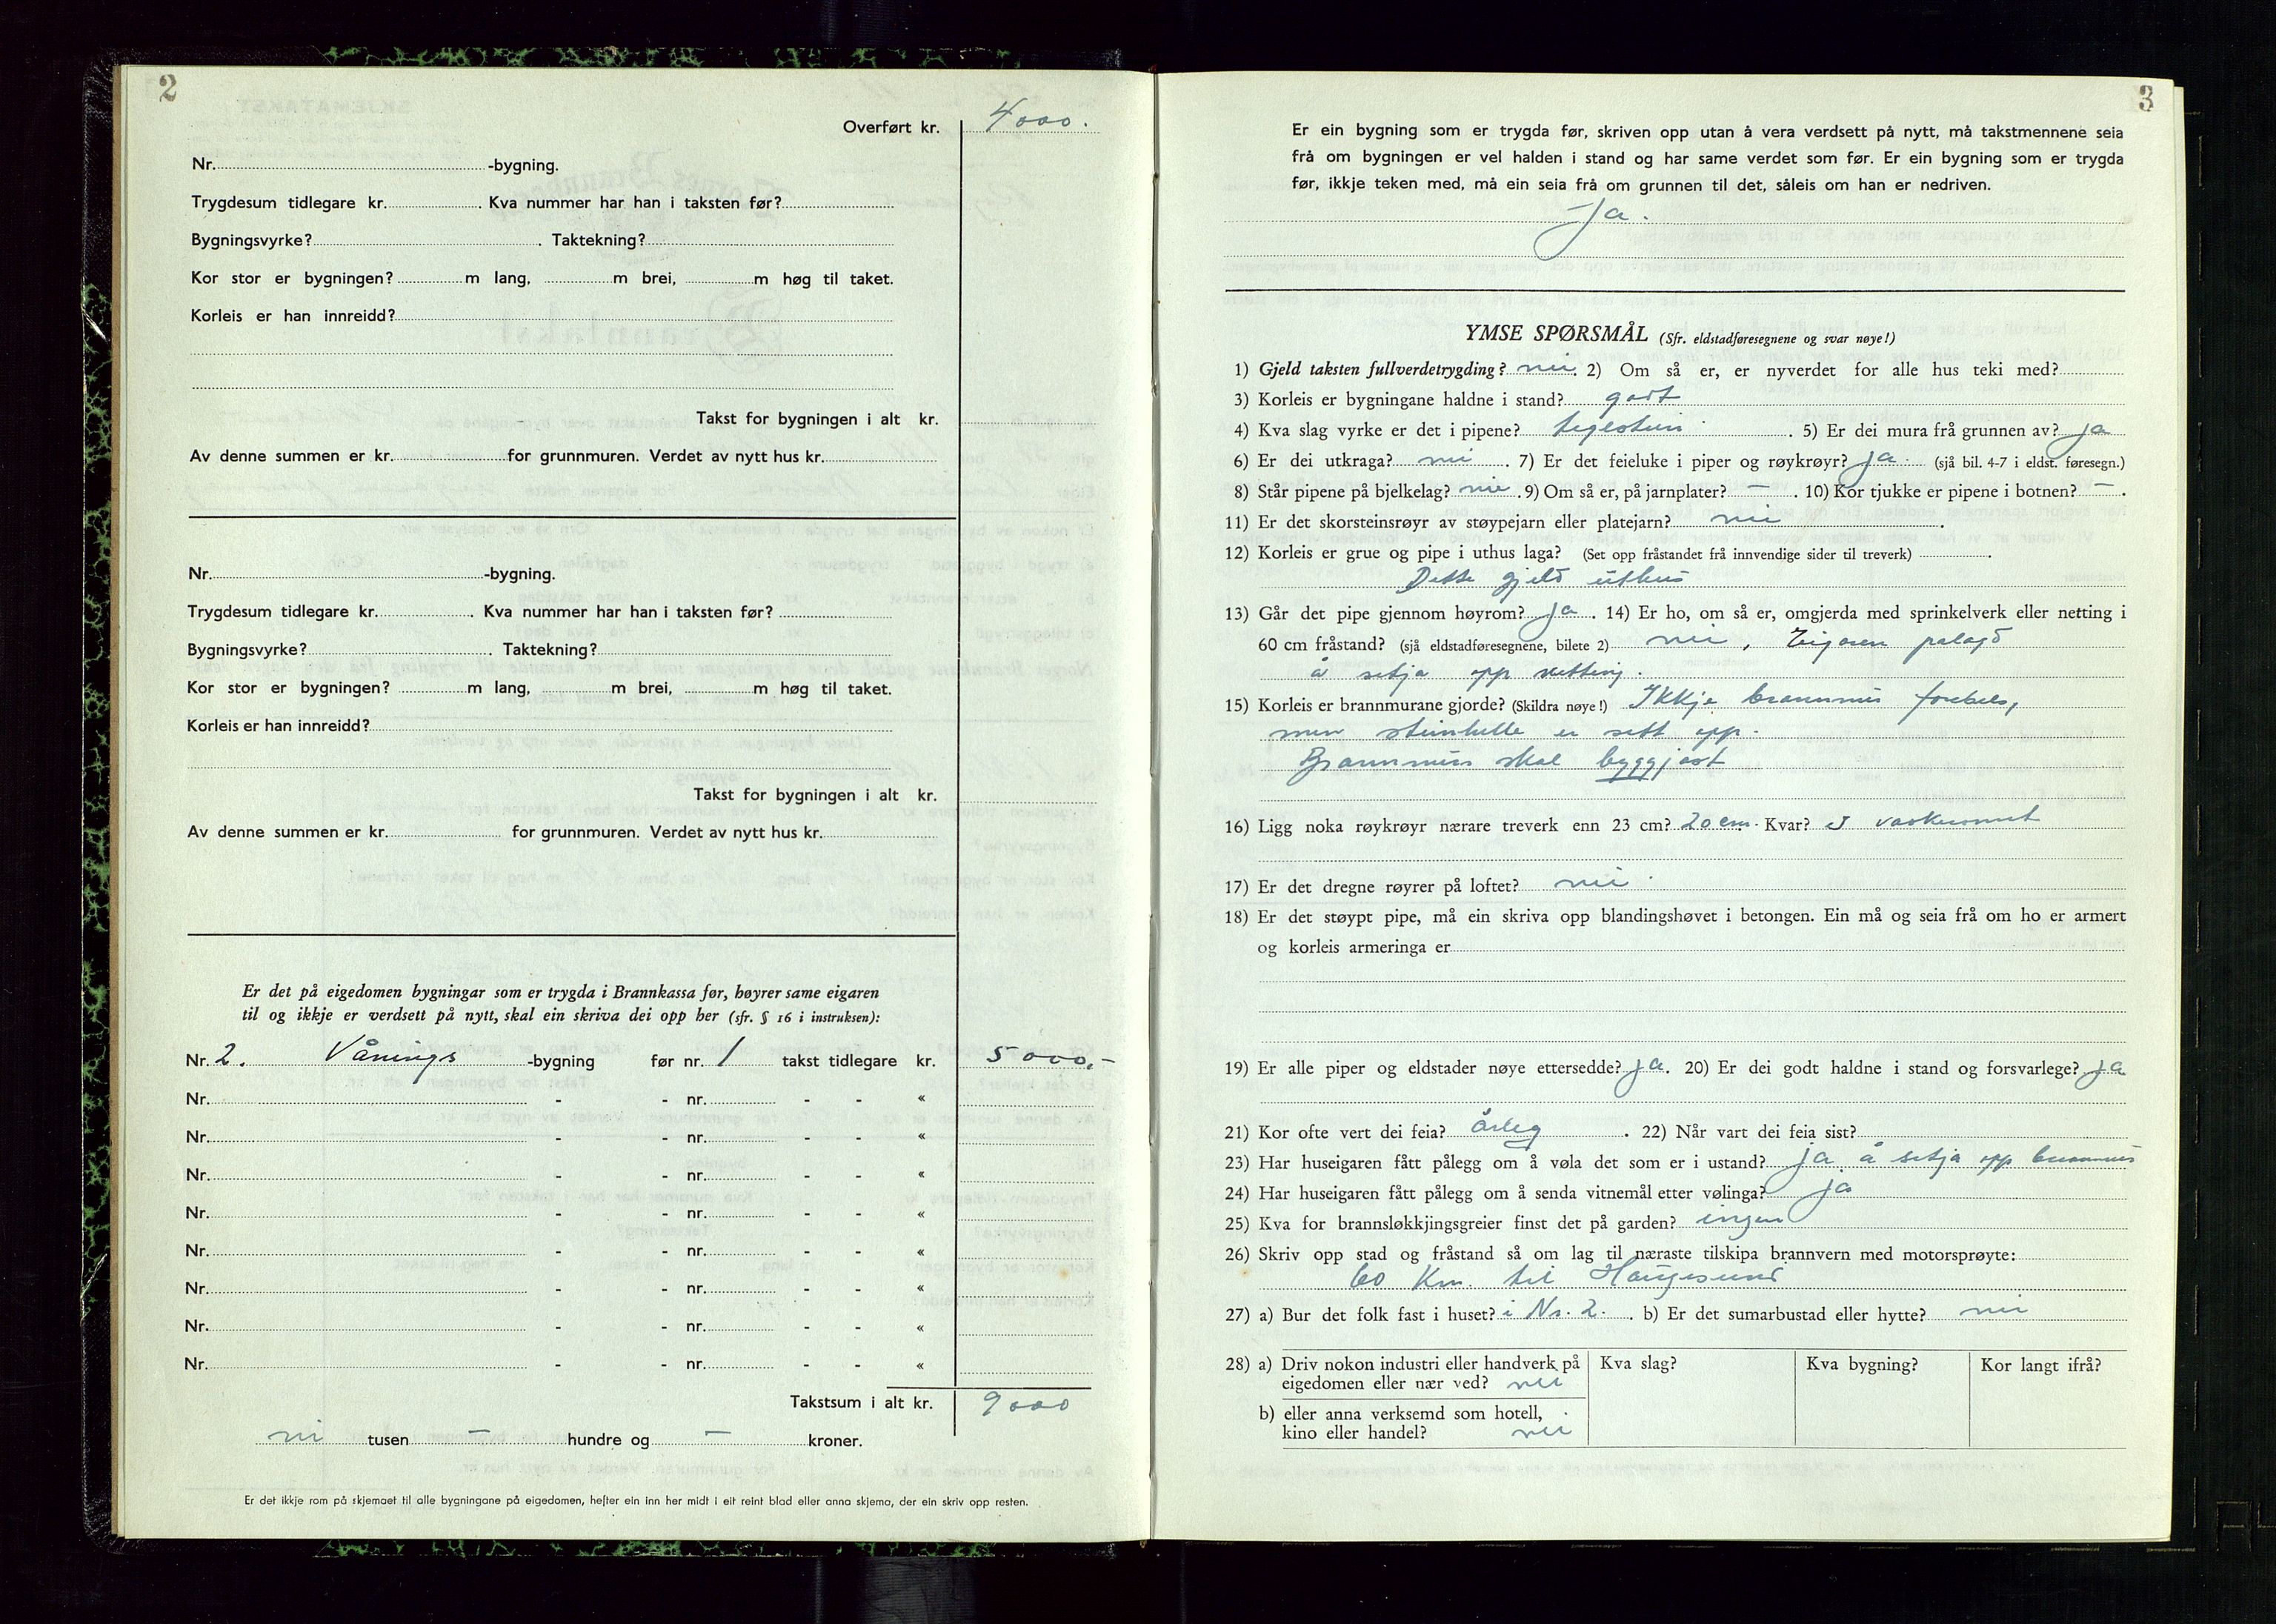 2
Overført kr. 4000.
Nr. -bygning.
Trygdesum tidlegare kr. . Kva nummer har han i taksten før?
Bygningsvyrke? . Taktekning?
Kor stor er bygningen? m lang, m brei, m høg til taket.
Korleis er han innreidd?
Takst for bygningen i alt kr.
Av denne summen er kr. for grunnmuren. Verdet av nytt hus kr.
Nr. -bygning.
Trygdesum tidlegare kr. . Kva nummer har han i taksten før?
Bygningsvyrke? . Taktekning?
Kor stor er bygningen? m lang, m brei, m høg til taket.
Korleis er han innreidd?
Takst for bygningen i alt kr.
Av denne summen er kr. for grunnmuren. Verdet av nytt hus kr.
Er det på eigedomen bygningar som er trygda i Brannkassa før, høyrer same eigaren
til og ikkje er verdsett på nytt, skal ein skriva dei opp her (sfr. § 16 i instruksen):
Nr. 2. Vånings -bygning før nr. 1 takst tidlegare kr. 5000,-
Nr. - - nr. - - «
Nr. - - nr. - - «
Nr. - - nr. - - «
Nr. - - nr. - - «
Nr. - - nr. - - «
Nr. - - nr. - - «
Nr. - - nr. - - «
Nr. - - nr. - - «
Takstsum i alt kr. 9000
ni tusen — hundre og — kroner.
Er det ikkje rom på skjemaet til alle bygningane på eigedomen, hefter ein inn her midt i eit reint blad eller anna skjema, der ein skriv opp resten.
3
Er ein bygning som er trygda før, skriven opp utan å vera verdsett på nytt, må takstmennene seia
frå om bygningen er vel halden i stand og har same verdet som før. Er ein bygning som er trygda
før, ikkje teken med, må ein seia frå om grunnen til det, såleis om han er nedriven.
Ja.
YMSE SPØRSMÅL (Sfr. eldstadføresegnene og svar nøye!)
1) Gjeld taksten fullverdetrygding? nei. 2) Om så er, er nyverdet for alle hus teki med?
3) Korleis er bygningane haldne i stand? godt
4) Kva slag vyrke er det i pipene? teglstein . 5) Er dei mura frå grunnen av? ja
6) Er dei utkraga? nei . 7) Er det feieluke i piper og røykrøyr? ja. (sjå bil. 4-7 i eldst. føresegn.)
8) Står pipene på bjelkelag? nei . 9) Om så er, på jarnplater? — . 10) Kor tjukke er pipene i botnen? — .
11) Er det skorsteinsrøyr av støypejarn eller platejarn? nei .
12) Korleis er grue og pipe i uthus laga? (Set opp fråstandet frå innvendige sider til treverk) .
Dette gjeld uthus
13) Går det pipe gjennom høyrom? ja . 14) Er ho, om så er, omgjerda med sprinkelverk eller netting i
60 cm fråstand? (sjå eldstadføresegnene, bilete 2) nei, Eigaren pålagd
å setja opp netting.
15) Korleis er brannmurane gjorde? (Skildra nøye!) Ikkje brannmur førebels,
men steinhelle er sett opp.
Brannmur skal byggjast
16) Ligg noka røykrøyr nærare treverk enn 23 cm? 20 cm. Kvar? I vaskeromet
17) Er det dregne røyrer på loftet? nei
18) Er det støypt pipe, må ein skriva opp blandingshøvet i betongen. Ein må og seia frå om ho er armert
og korleis armeringa er
19) Er alle piper og eldstader nøye ettersedde? ja. 20) Er dei godt haldne i stand og forsvarlege? ja
21) Kor ofte vert dei feia? årleg . 22) Når vart dei feia sist?
23) Har huseigaren fått pålegg om å vøla det som er i ustand? ja å setja opp brannmur
24) Har huseigaren fått pålegg om å senda vitnemål etter vølinga? ja
25) Kva for brannsløkkjingsgreier finst det på garden? ingen
26) Skriv opp stad og fråstand så om lag til næraste tilskipa brannvern med motorsprøyte:
60 Km. til Haugesund
27) a) Bur det folk fast i huset? i Nr. 2. . b) Er det sumarbustad eller hytte? nei
28) a) Driv nokon industri eller handverk på Kva slag? Kva bygning? Kor langt ifrå?
eigedomen eller nær ved? nei
b) eller anna verksemd som hotell,
kino eller handel? nei